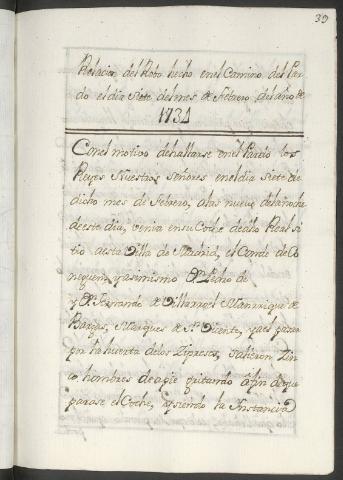 39
Relacion del Robo hecho en el Camino del Par-
do el dia siete del mes de Febrero del año de
1734
Con el motivo de hallarse en el Pardo los
Reyes Nuestros señores en el dia siete de
dicho mes de Febrero, a las nueve de la noche
de este dia, venia en su Coche de dho Real si
tio a esta Villa de Madrid, el Conde de Co
y asimismo Dn. Pedro de
y Dn. Fernando de Villarroel Manrrique de
Bargas, Marques de Sn. Vicente, y al pasar
pr. la huerta de los Zipreses, salieron Zin
co hombres de a pie gritando a fin de que
parase el Coche, y siendo la Instancia